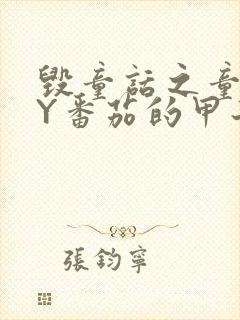 毀童話之童
Y番茄的甲
張鈞寧